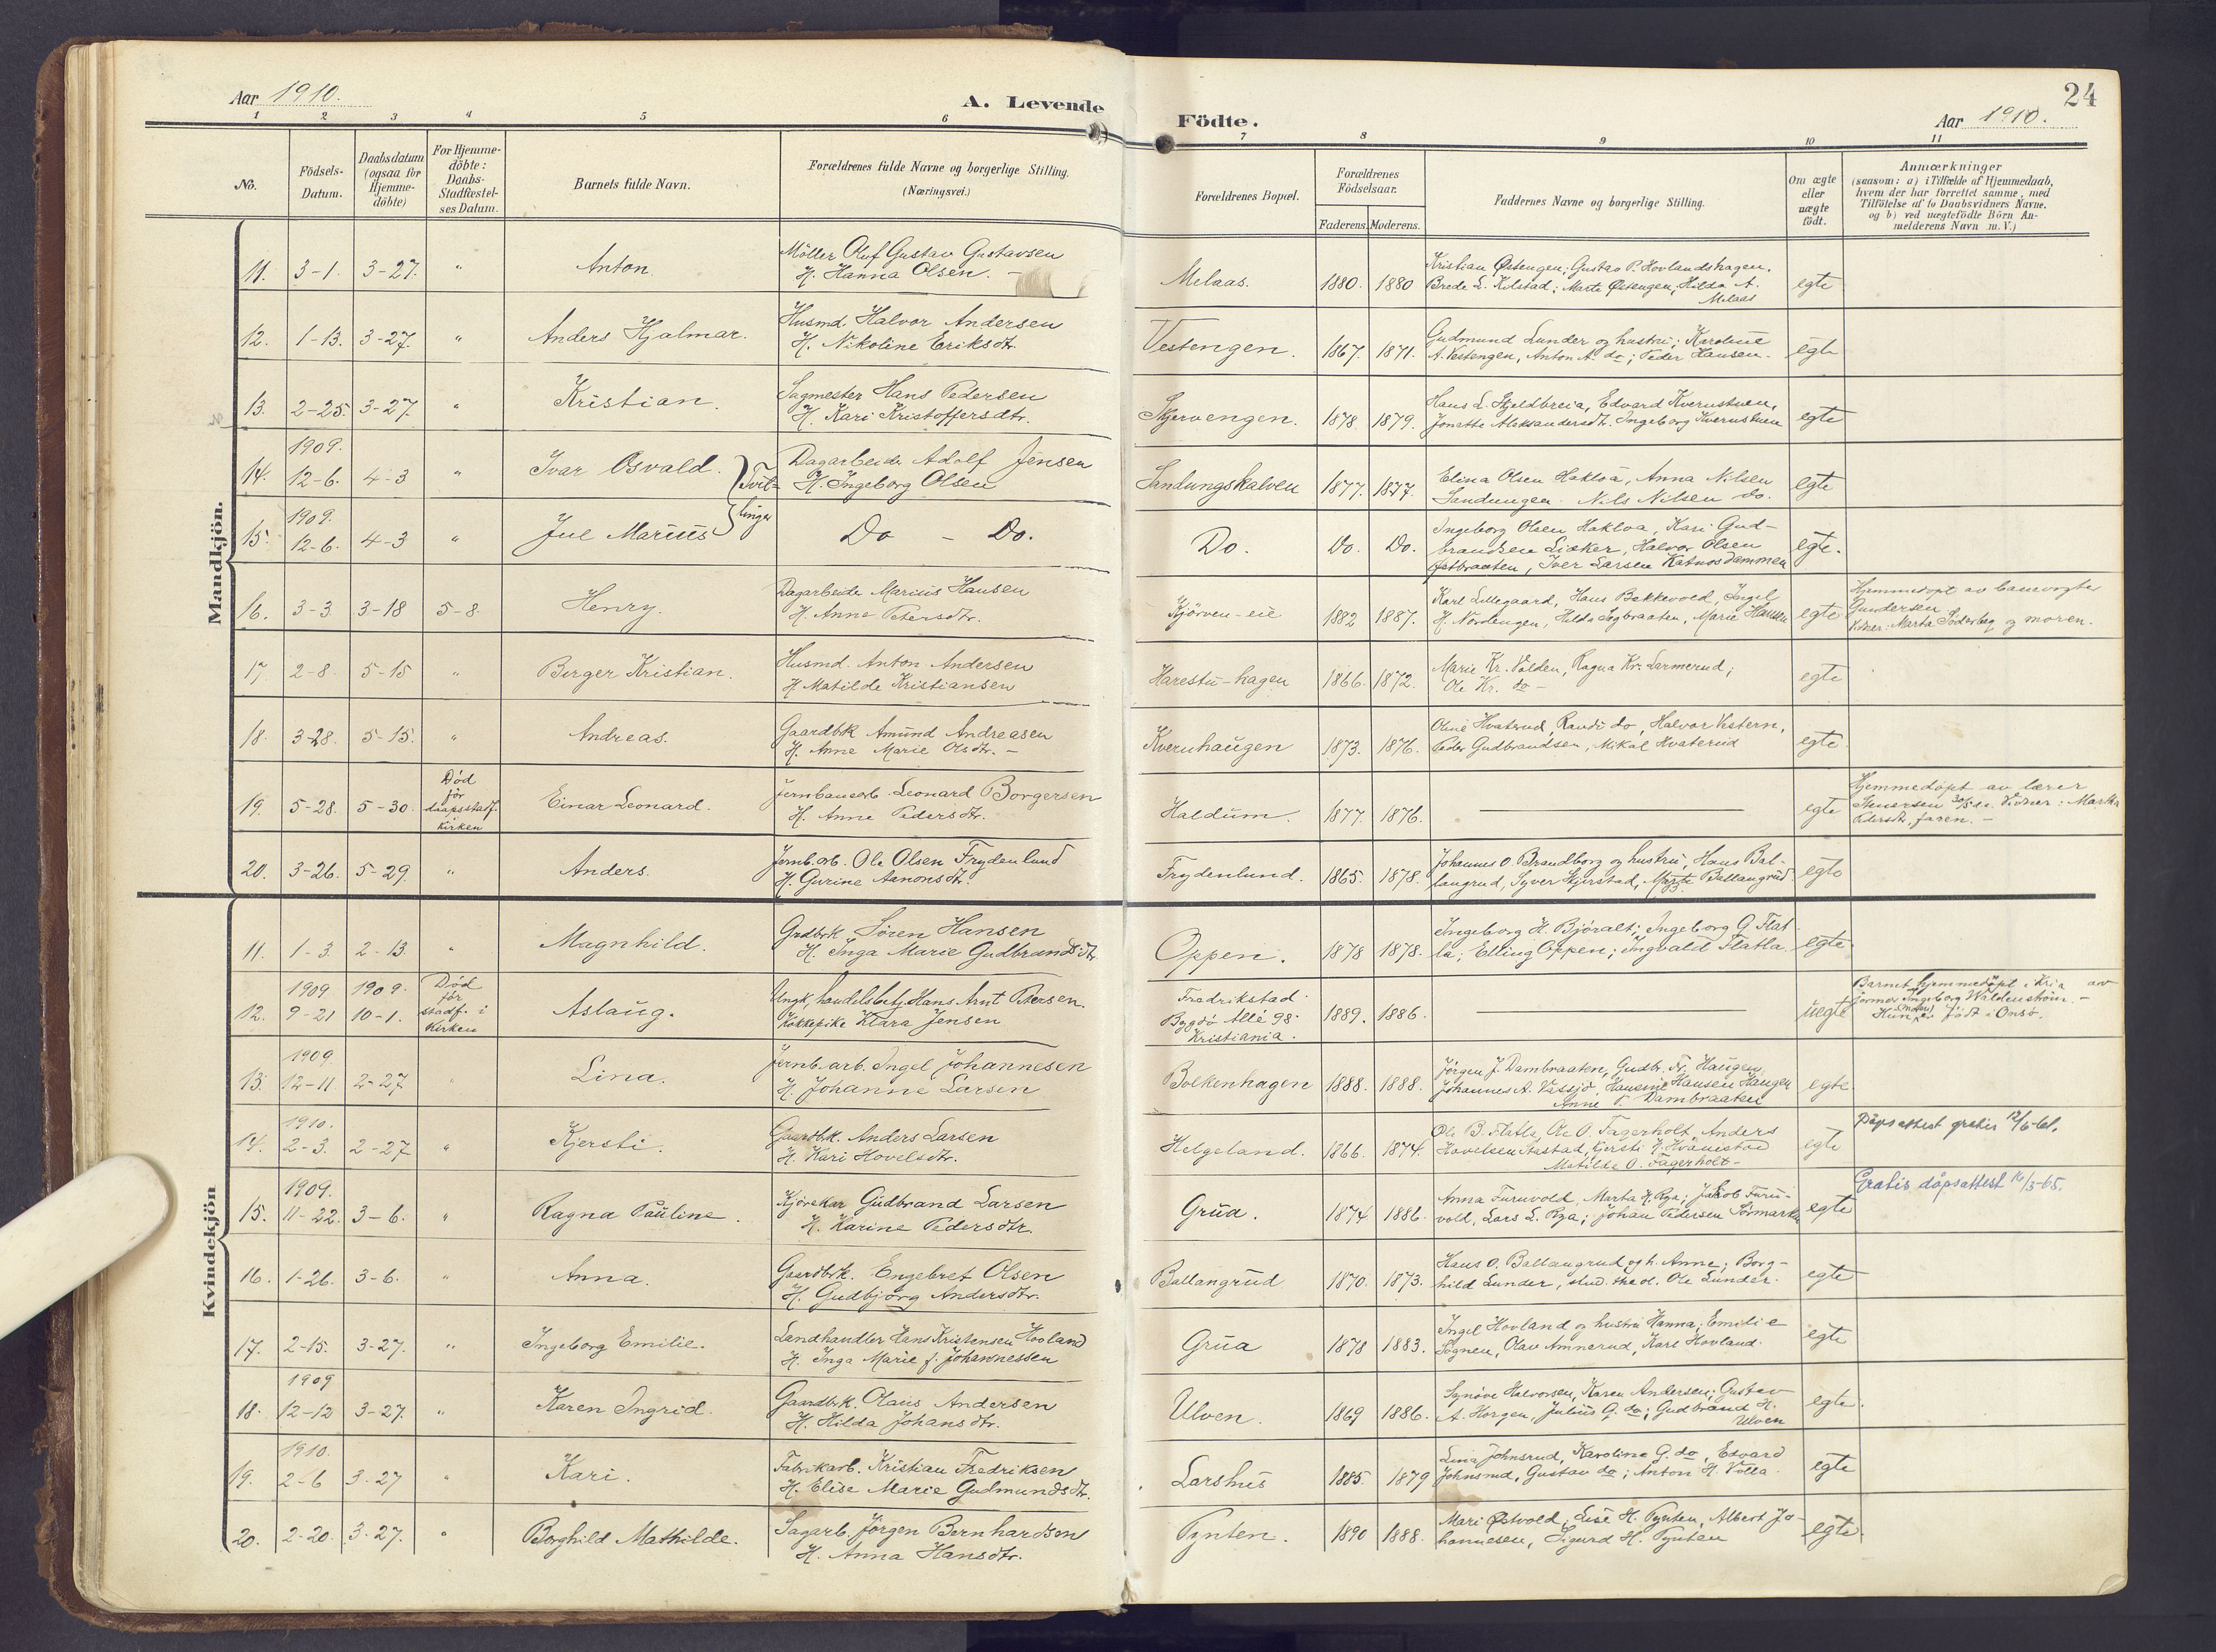 24
Aar 1910.
A. Levende Födte.
Aar 1910.
1 2 3 4 5 6 7 8 9 10 11
No.
Födsels-Datum.
Daabsdatum (ogsaa for Hjemme-döbte)
For Hjemme-döbte: Daabs-Stadfæstel-ses Datum.
Barnets fulde Navn.
Forældrenes fulde Navne og borgerlige Stilling. (Næringsvei.)
Forældrenes Bopæl.
Forældrenes Födselsaar.
Faderens. Moderens.
Faddernes Navne og borgerlige Stilling.
Om ægte eller uægte födt.
Anmærkninger
(saasom: a) i Tilfælde af Hjemmedaab, hvem der har forrettet samme, med Tilföielse af to Daabsvidners Navne, og b) ved uægtefödte Börn An-melderens Navn m. V.)
Mandkjön.
11. 3-1. 3-27. " Anton. Möller Oluf Gustav Gustavsen
H. Hanna Olsen. - Melaas. 1880. 1880 Kristian Østengen; Gustav P. Hovlandshagen.
Brede L. Kilstad; Marte Østengen, Hilda A.
Melaas egte
12. 1-13. 3-27. " Anders Hjalmar. Husmd. Halvor Andersen
H. Nikoline Eriksdtr. Vestengen. 1867. 1871. Gudmund Lunder og hustru; Karoline
A. Vestengen, Anton A. do; Peder Hansen. egte
13. 2-25. 3-27. " Kristian. Sagmester Hans Pedersen
H. Kari Kristoffersdtr. Skjervengen. 1878 1879. Hans L. Skjeldbreia, Edvard Kvernstuen,
Jonette Aleksandersdt. Ingeborg Kvernstuen egte
14. 1909. 12-6. 4-3 " Ivar Osvald. } Tvil= Dagarbeider Adolf Jensen
H. Ingeborg Olsen Sandungskalven 1877. 1877. Elina Olsen Hakloa, Anna Nilsen
Sandungen. Nils Nilsen do. egte
15. 1909. 12-6. 4-3 " Jul Marius } linger Do - Do. Do. Do. Do. Ingeborg Olsen Hakloa, Kari Gud-
brandsen Lisker, Halvor Olsen
Østbraaten, Iver Larsen Katnosdammen egte.
16. 3-3. 3-18 5-8. Henry. Dagarbeider Marius Hansen
H. Anne Petersdtr. Kjörven-eie 1882 1887. Karl Lillegaard, Hans Bekkevold, Ingel
H. Nordengen, Hilda Sagbraaten, Marie Hansen egte Hjemmedöpt av banevogter
Gundersen
Vidner: Marta Söderberg og moren.
17. 2-8. 5-15 " Birger Kristian. Husmd. Anton Andersen
H. Matilde Kristiansen Harestu-hagen 1866. 1872. Marie Kr. Volden, Ragna Kr. Larmerud;
Ole Kr. do - egte
18. 3-28. 5-15. " Andreas. Gaardbk. Amund Andreasen
H. Anne Marie Olsdtr. - Kvernhaugen 1873. 1876. Oline Hvaterud, Randi do, Halvor Vestern,
Peder Gudbrandsen, Mikal Hvaterud egte
19. 5-28. 5-30. Död för daapsstadf. kirken Einar Leonard. Jernbanearb. Leonard Borgersen
H. Anne Pedersdtr. Haldum. 1877. 1876. — egte Hjemmedöpt av lærer
30/5 d.a. Vidner: Martha
Pedersdtr, faren. -
20. 3-26. 5-29. " Anders. Jernb.arb. Ole Olsen Frydenlund
H. Gurine Aanonsdtr. Frydenlund. 1865. 1878. Johannes O. Brandborg og hustru, Hans Bal-
langrud, Syver Skjerstad, Marte Ballangrud. egte
Kvindekjön
11. 1-3. 2-13. " Magnhild. Grdbrk. Sören Hansen
H. Inga Marie Gudbrandsdtr. Oppen. 1878 1878. Ingeborg H. Björalt; Ingeborg G. Flat-
la; Elling Oppen; Ingvald Flatla. egte
12. 1909 9-21 1909. 10-1. Död för stadf. i kirken Aslaug. Ungk. handelsbetj. Hans Arnt Petersen.
Kokkepike Klara Jensen Fredrikstad.
Bygdö Allé 98.
Kristiania. 1889. 1886. — uegte Barnet hjemmedöpt i Kr.ia av
jormor Ingeborg Waldenström. -
Hun (moren) er födt i Onsö.
13. 1909 12-11 2-27 " Lina. Jernb.arb. Ingel Johannesen
H. Johanne Larsen Bolkenhagen 1888. 1888. Jörgen J. Dambraaten, Gudb. Fr. Haugen,
Johannes A. Vassjö, Hansine Hansen Haugen
Anne T. Dambraaten egte
14. 1910. 2-3. 2-27 " Kjersti. Gaardbk. Anders Larsen
H. Kari Hovelsdtr. Helgeland. 1866. 1874. Ole B. Flatla, Ole O. Fagerholt, Anders
Hovelsen Aastad, Kjersti H. Hvamstad
Matilde O. Fagerholt- egte Dåpsattest gratis 12/6-61.
15. 1909. 11-22. 3-6. " Ragna Pauline. Kjörekar Gudbrand Larsen
H. Karine Pedersdtr. Grua. 1874 1886. Anna Furuvold, Marta H. Rya; Jakob Furu-
vold, Lars L. Rya; Johan Pedersen Sörmarken egte Gratis dåpsattest 16/3-65.
16. 1-26. 3-6. " Anna. Gaardbrk. Engebret Olsen
H. Gudbjörg Andersdtr. Ballangrud 1870. 1873. Hans O. Ballangrud og h. Anne; Borg-
hild Lunder, stud. theol. Ole Lunder. egte
17. 2-15. 3-27. " Ingeborg Emilie. Landhandler Hans Kristensen Hovland
H. Inga Marie f. Johannessen Grua 1878 1883. Ingel Hovland og hustru Hanna; Emilie
Sognen, Olav Amnerud, Karl Hovland. egte
18. 1909 12-12 3-27. " Karen Ingrid. Gaardbrk. Olaus Andersen
H. Hilda Johansdtr. Ulven. 1869 1886. Synöve Halvorsen, Karen Andersen; Gustav
A. Horgen, Julius G. do; Gudbrand H.
Ulven egte.
19. 1910. 2-6 3-27 " Kari. Fabrikarb. Kristian Fredriksen
H. Elise Marie Gudmundsdtr. Larshus 1885. 1879 Lina Johnsrud, Karoline G. do, Edvard
Johnsrud, Gustav do; Anton H. Volla. egte
20. 2-20. 3-27. " Borghild Mathilde. Sagarb. Jörgen Bernhardsen
H. Anna Hansdtr. Tynten. 1890 1888. Mari Østvold, Lise H. Tynten, Albert Jo-
hannesen, Sigurd H. Tynten egte.